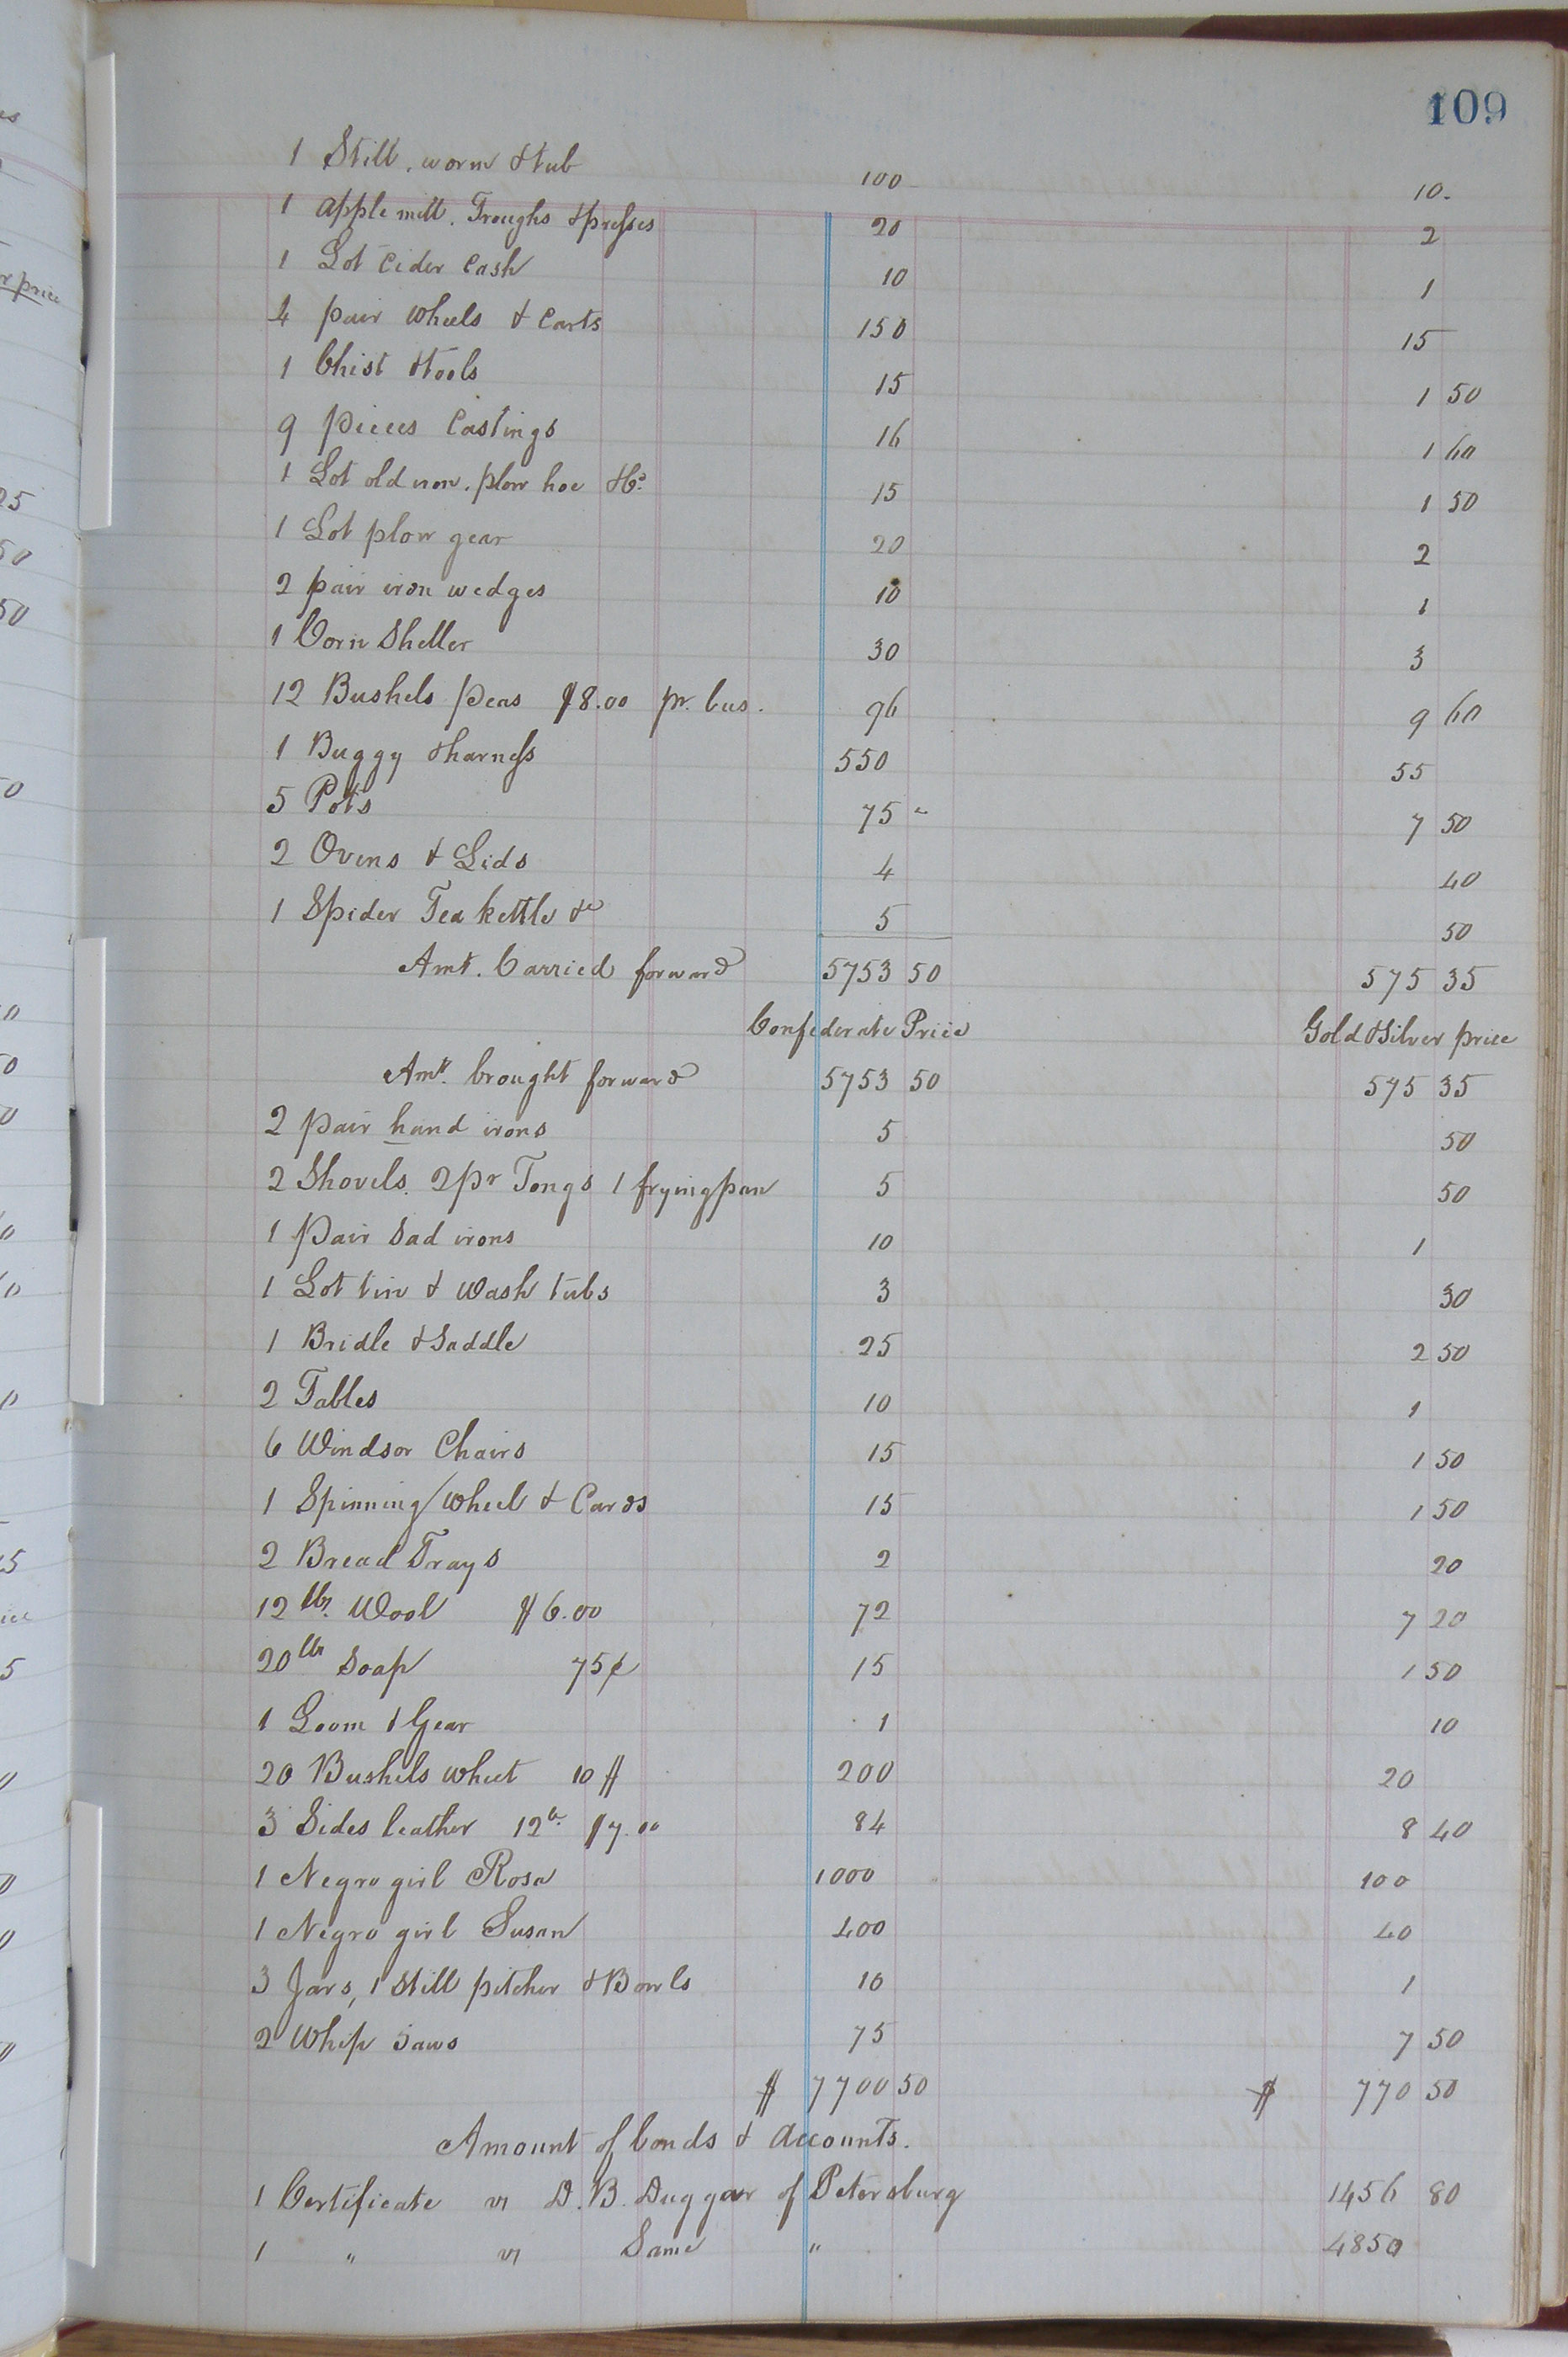 109
1 Still, worm & tub 100 10.
1 apple mill. Troughs & presses 20 2
1 Lot Cider Cask 10 1
4 pair Wheels & Carts 150 15
1 Chist & tools 15 1 50
9 pieces Castings 16 1 60
1 Lot old iron. plow hoe &c. 15 1 50
1 Lot plow gear 20 2
2 pair iron wedges 10 1
1 Corn Sheller 30 3
12 Bushels peas $8.00 pr. bus. 96 9 60
1 Buggy & harness 550 55
5 Pots 75 7 50
2 Ovens & Lids 4 40
1 Spider Tea kettle &c 5 50
Amt. Carried forward 5753 50 575 35
Confederate Price Gold & Silver price
Amt. brought forward 5753 50 575 35
2 pair hand irons 5 50
2 Shovels. 2 pr Tongs 1 frying pan 5 50
1 Pair Sad irons 10 1
1 Lot tin & Wash tubs 3 30
1 Bridle & Saddle 25 2 50
2 Tables 10 1
6 Windsor Chairs 15 1 50
1 Spinning Wheel & Cards 15 1 50
2 Bread Trays 2 20
12 lbs. Wool $6.00 72 7 20
20 lbs Soap 75¢ 15 1 50
1 Loom & Gear 1 10
20 Bushels wheet 10 $ 200 20
3 Sides leather 12 lb. $7.00 84 8 40
1 Negro girl Rosa 1000 100
1 Negro girl Susan 400 40
3 Jars, 1 Still pitcher & Bowls 10 1
2 Whip Saws 75 7 50
$ 7700 50 $ 770 50
Amount of bonds & accounts.
1 Certificate vs D. B. Duggar of Petersburg 1456 80
1 " vs Same " 4850